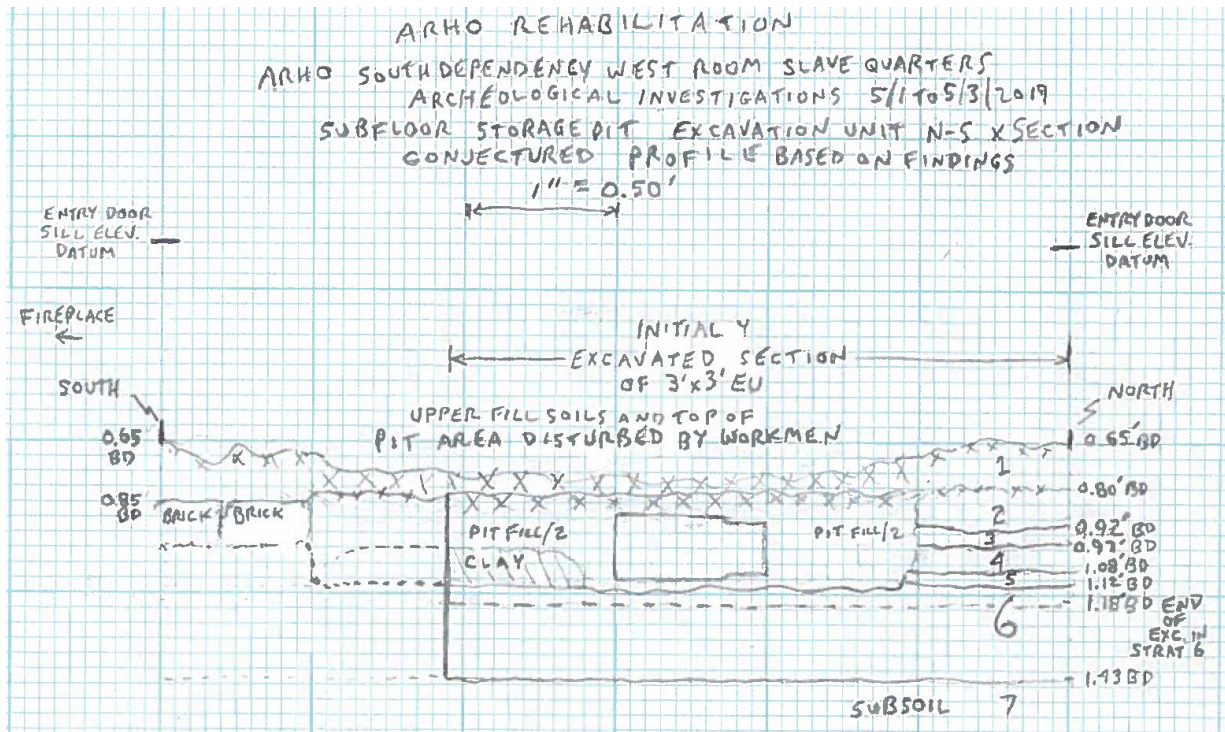 ARHO REHABILITATION
ARHO SOUTH DEPENDENCY WEST ROOM SLAVE QUARTERS
ARCHEOLOGICAL INVESTIGATIONS 5/1 TO 5/3/2019
SUBFLOOR STORAGE PIT EXCAVATION UNIT N-S XSECTION
CONJECTURED PROFILE BASED ON FINDINGS
1" = 0.50'
ENTRY DOOR
SILL ELEV.
DATUM
ENTRY DOOR
SILL ELEV.
DATUM
FIREPLACE
INITIALLY
EXCAVATED SECTION
OF 3'x3' EU
SOUTH
NORTH
UPPER FILL SOILS AND TOP OF
PIT AREA DISTURBED BY WORKMEN
0.65'
BD
0.65'BD
1
1
0.80'BD
0.85'
BD
BRICK
BRICK
PIT FILL/2
PIT FILL/2
2
0.92'BD
3
0.97'BD
CLAY
4
1.08'BD
5
1.12'BD
6
1.18'BD END
OF
EXC. IN
STRAT 6
1.43 BD
SUBSOIL 7